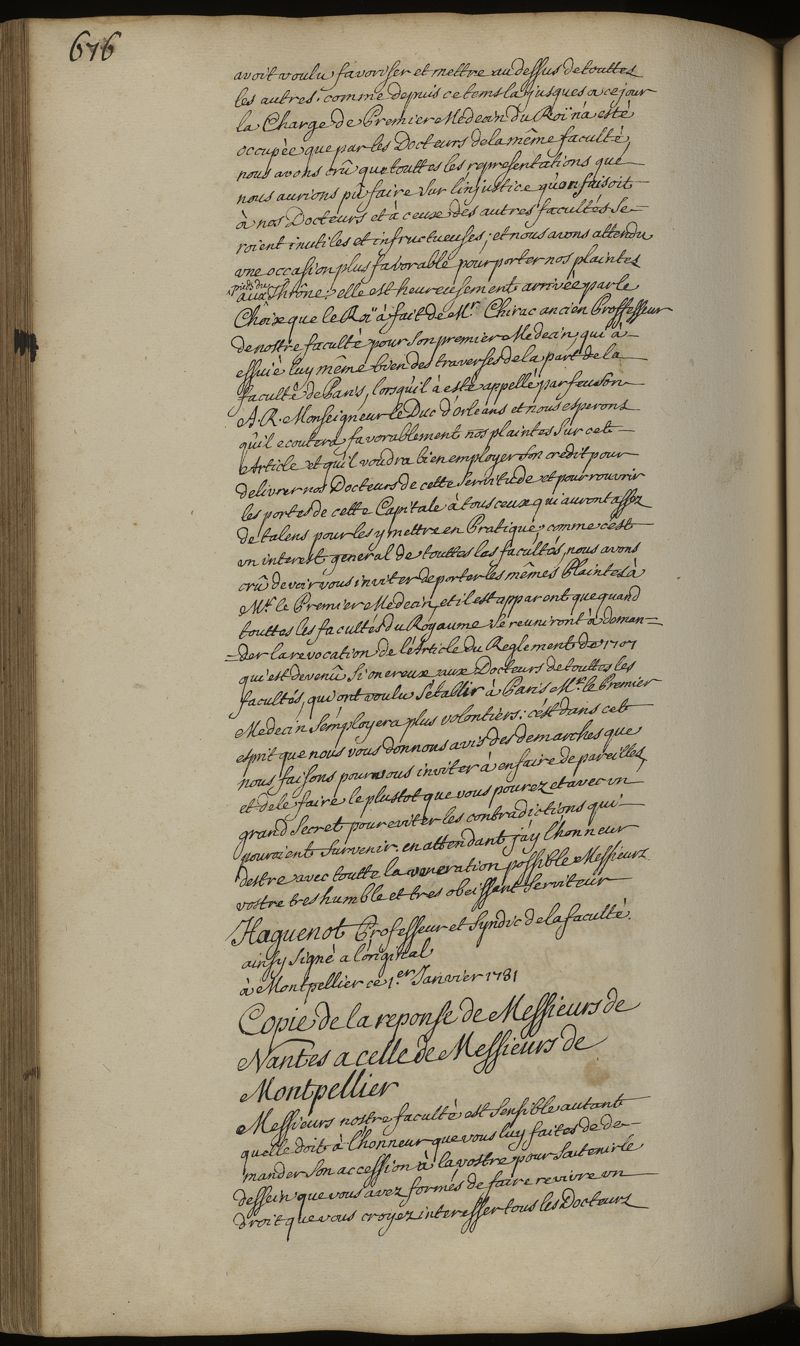 676
avoit voulu favoriser et mettre au dessus de touttes
les autres. comme depuis ce tems la jusques a ce jour
la Charge de Premier Medecin du Roï n'a esté
occupèe que par les Docteurs de la même faculté,
nous avons crû que touttes les representations que
nous aurions pû faire sur l'injustice qu'on faisoit
à nos Docteurs et à ceux des autres facultés se-
roient inutiles et infructueuses; et nous avons attendu
une occasion plus favorable pour porter nos plaintes
pieds du
aux Thrône; elle est heureusement arrivée par le
Choix que le Roï à fait de Mr. Chirac ancien Proffesseur
de nostre faculté pour son premier Medecin qui à
essuié luy même bien des traverses de la part de la
faculté de Paris, lorsqu'il à esté appellé par feu son
A. R. Monseigneur le Duc d'orleans et nous esperons
qu'il ecoutera favorablement nos plaintes sur cet
Article et qu'il voudra bien employer son credit pour
delivrer nos Docteurs de cette servitude et pour rouvrir
les portes de cette Capitale à tous ceux qui auront assez
de talens pour les y mettre en Pratique, comme c'est
un interest general de touttes les facultés, nous avons
crû devoir vous inviter de porter les mêmes Plaintes à
Mr. le Premier Medecin, et il est apparent que quand
touttes les facultés du Royaume se reuniront à deman=
=der la revocation de l'Article du Reglement de 1707
qui est devenû si onereux aux Docteurs de touttes les
facultés, qui ont voulu s'etablir à Paris Mr. le Premier
Medecin s'employera plus volontiers; c'est dans cet
esprit que nous vous donnons avis des demarches que
nous faisons pour vous inviter à en faire de pareilles,
et de le faire le plustot que vous pourez et avec un
grand secret pour eviter les contradictions qui
pouroient survenir. en attendant j'ay l'honneur
destre avec toutte la veneration possible Messieurs
vostre tres humble et tres obeissant serviteur
Haguenot Professeur et Syndic de la faculté.
ainsy signé a l'original
à Montpellier ce 1.er Janvier 1731
Copie de la reponse de Messieurs de
Nantes a celle de Messieurs de
Montpellier
Messieurs nostre faculté est sensible autant
quelle doit à l'honneur que vous luy faites de de-
mander son accession à la vostre pour soutenir le
dessein que vous avez formés de faire revivre un
droit que vous croyez interesser tous les Docteurs